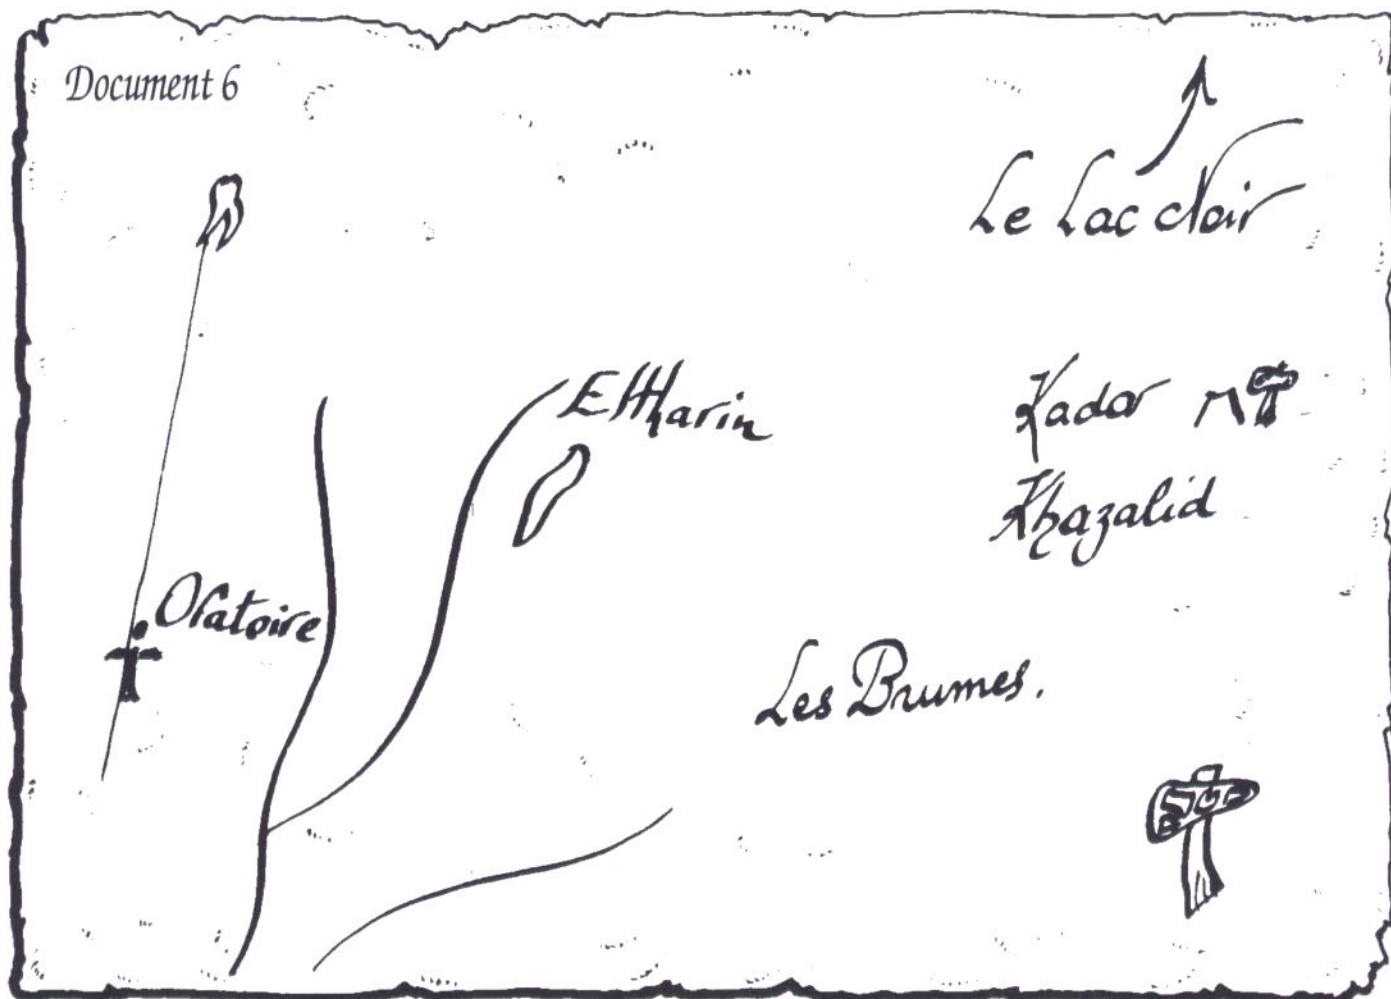 Document 6
Le Lac Noir
Eltharin
Kador
Khazalid
Oratoire
Les Brumes.